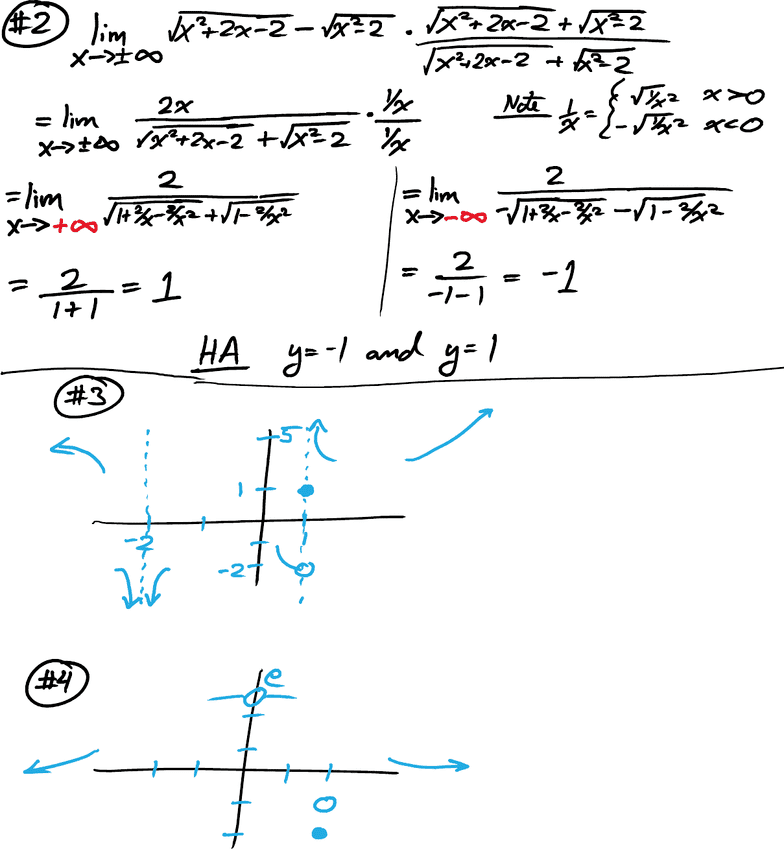 #2 lim x→±∞ √(x²+2x-2) - √(x²-2) · (√(x²+2x-2) + √(x²-2))/(√(x²+2x-2) + √(x²-2))
= lim x→±∞ 2x/(√(x²+2x-2) + √(x²-2)) · (1/x)/(1/x) Note 1/x = { √(1/x²) x>0
-√(1/x²) x<0
= lim x→+∞ 2/(√(1+2/x-2/x²) + √(1-2/x²))
= 2/(1+1) = 1
= lim x→-∞ 2/(-√(1+2/x-2/x²) - √(1-2/x²))
= 2/(-1-1) = -1
HA y=-1 and y=1
#3
5
1
-2
1
-2
#4
e